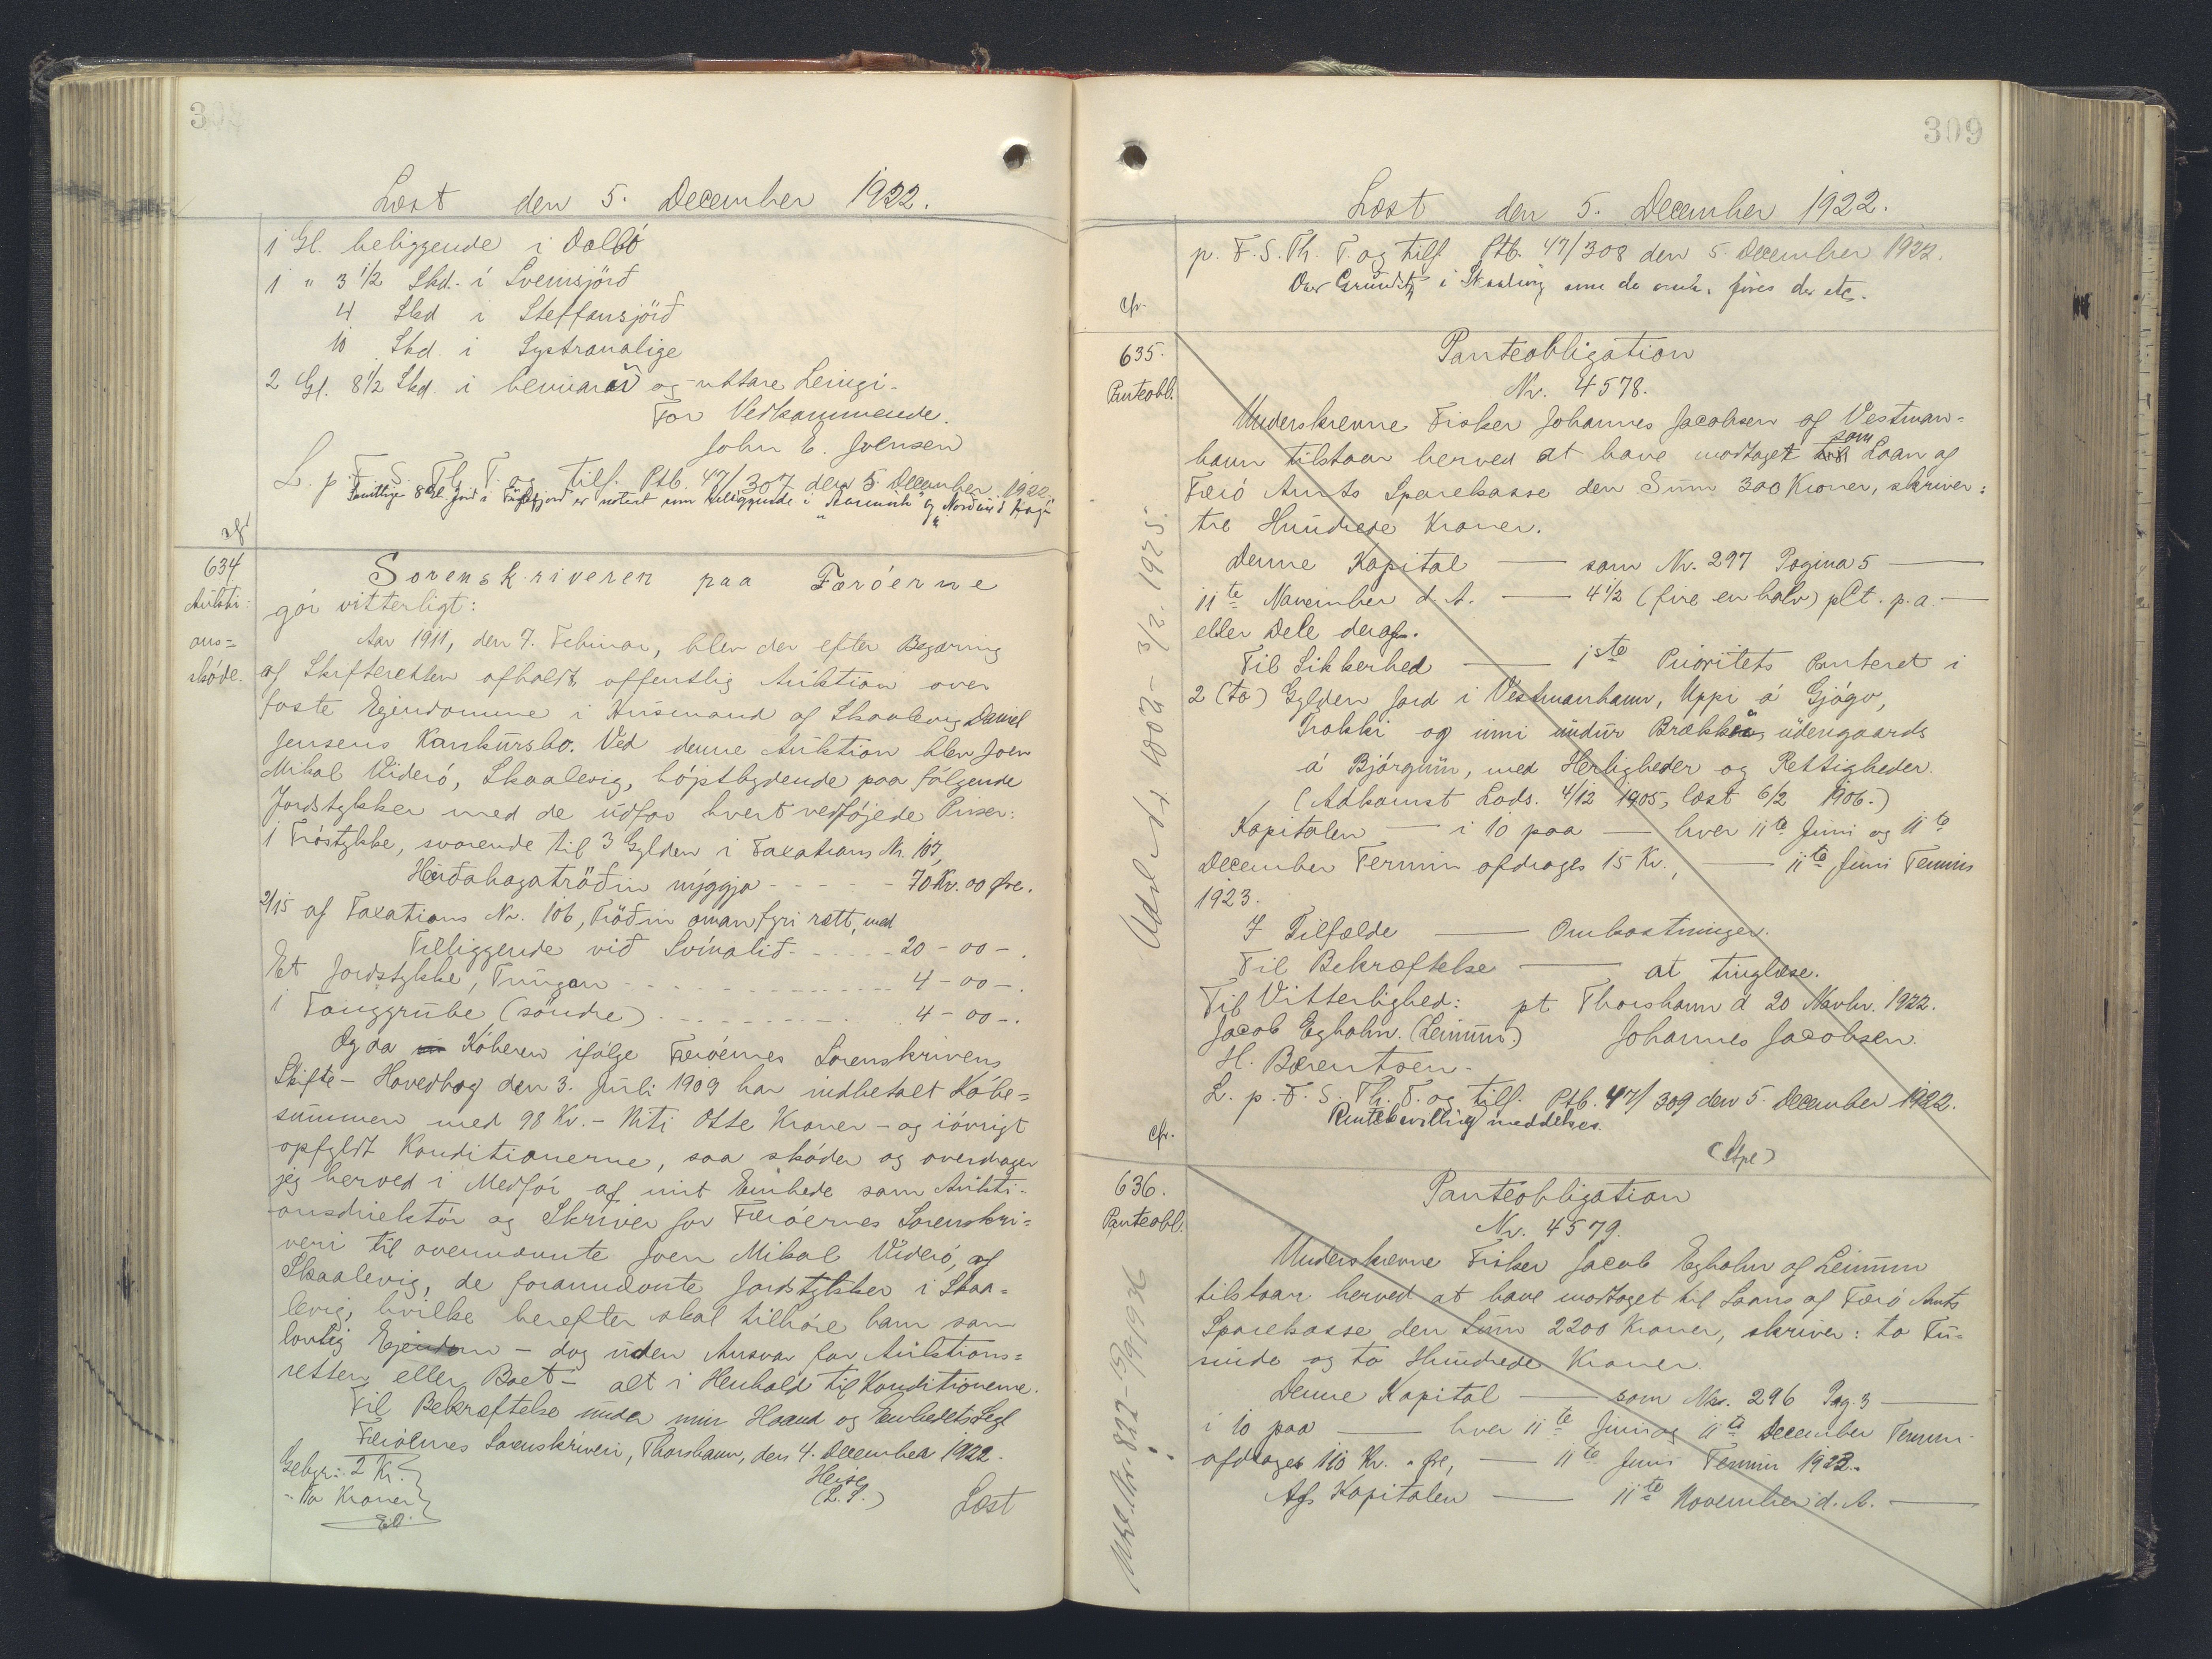 308
Læst den 5. December 1922.
1 Gl. beliggende i Dalbö
1 " 3 1/2 Skd. i Sveinsjörð
4 Skd i Steffansjörð
10 Skd. i Systranalige
2 Gl. 8 1/2 Skd. i og uttare Leingi-
For Vedkommende.
John E. Joensen
L. p. F. S. Th. T. og tilf. Ptb. 47/307 den 5. December 1922.
Samtlige 8 Gl. Jord i er noteret som beliggende i " og Norduri i
cfr
634
Auktions=
skóde.
Sorenskriveren paa Færóerne
gór vitterligt:
Aar 1911, den 7. Februar, blev der efter Begæring
af Skifteretten afholdt offentlig Auktion over
faste Ejendomme i Husmand af Skaalevig Daniel
Jensens Konkursbo. Ved denne Auktion blev Joen
Mikal Videró, Skaalevig, höjstbydende paa fölgende
Jordstykker med de udfor hvert vedföjede Priser:
1 Tröstykke, svarende til 3 Gylden i Taxations Nr. 107,
Heiðahagatröðin nýggja - - - - - 70 Kr. 00 Øre.
2/15 af Taxations Nr. 106, Tröðin oman fyri rætt, med
Tilliggende við Svínalið - - - - - 20 - 00 -.
Et Jordstykke, Tungan - - - - - - 4 - 00 -.
1 Tanggrube (söndre) - - - - - - 4 - 00 -.
Og da Köberen ifölge Færóernes Sorenskriveris
Skifte - Hovedbog den 3. Juli 1909 har indbetalt Köbe=
summen med 98 Kr. - Niti Otte Kroner - og iövrigt
opfyldt Konditionerne, saa sköder og overdrager
jeg herved i Medför af mit Embede som Aukti-
onsdirektör og Skriver for Færöernes Sorenskri=
veri til ovennævnte Joen Mikal Videró, af
Skaalevig, de forannævnte Jordstykker i Skaa=
levig, hvilke herefter skal tilhöre ham som
lovlig Ejendom - dog uden Ansvar for Auktions=
retten eller Boet - alt i Henhold til Konditionerne.
Til Bekræftelse under min Haand og Embedets Segl
Færöernes Sorenskriveri, Thorshavn, den 4. December 1922.
Gebyr: 2 Kr.
- to Kroner
Heise
(L. S.)
Læst
309
Læst den 5. December 1922.
p. F. S. Th. T. og tilf. Ptb. 47/308 den 5. December 1922.
cfr.
635.
Panteobl.
Panteobligation
Nr. 4578.
Underskrevne Fisker Johannes Jacobsen af Vestman=
havn tilstaar herved at have modtaget som Laan af
Færó Amts Sparekasse den Sum 300 Kroner, skriver:
tre Hundrede Kroner.
Denne Kapital — som Nr. 297 Pagina 5 —
11te November d. A. — 4 1/2 (fire en halv) pCt. p. a. —
eller Dele deraf.
Til Sikkerhed — 1ste Prioritets Panteret i
2 (to) Gylden Jord i Vestmanhavn, Uppi á Gjógv,
Trákki og inni undur Brækku, udengaards
á Bjórgun, med Herligheder og Rettigheder.
(Adkomst Lods. 4/12 1905, læst 6/2 1906.)
Kapitalen — i 10 paa — hver 11te Juni og 11te
December Termin afdrages 15 Kr., — 11te Juni Termin
1923.
I Tilfælde — Omkostninger.
Til Bekræftelse — at tinglæse.
Til Vitterlighed: pt Thorshavn d 20 Novbr. 1922.
Jacob Egholm. (Leinum) Johannes Jacobsen.
H. Bærentsen.
L. p. F. S. Th. T. og tilf. Ptb. 47/309 den 5. December 1922.
meddeles.
Udsl. d. 1002 - 3/2 1925
cfr.
636.
Panteobl.
Panteobligation
Nr. 4579.
Underskrevne Fisker Jacob Egholm af Leinum
tilstaar herved at have modtaget til Laans af Færó Amts
Sparekasse den Sum 2200 Kroner, skriver: to Tu=
sinde og to Hundrede Kroner.
Denne Kapital — som Nr. 296 Pag. 3 —
i 10 paa — hver 11te Juni og 11te December Termin
afdrages 110 Kr. " Øre, — 11te Juni Termin 1923.
Af Kapitalen — 11te November d. A. —